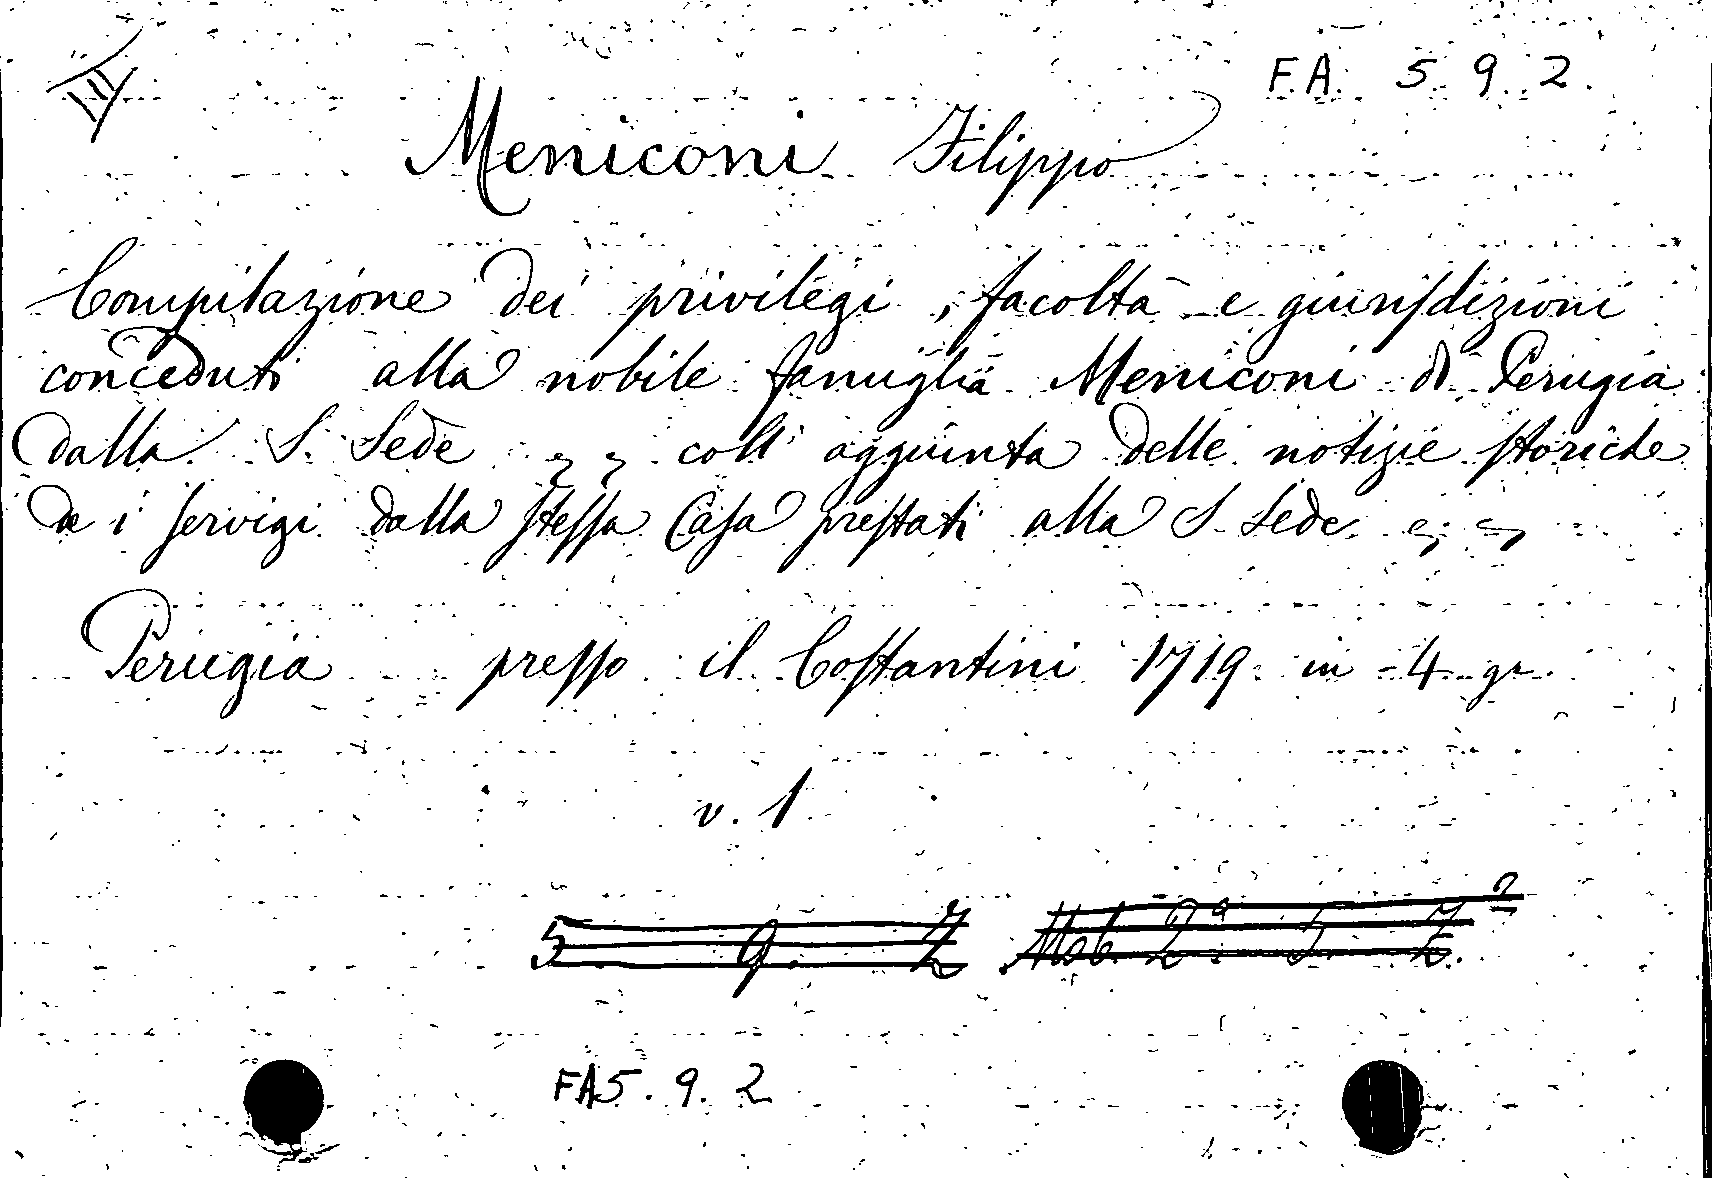 III
F.A. 5. 9. 2.
Meniconi Filippo
Compilazione dei privilégi, facoltà e giurisdizioni
conceduti alla nobile famiglia Meniconi di Perugia
dalla S. Sede coll' aggiunta delle notizie storiche
de i servigi dalla stessa Casa prestati alla S. Sede
Perugia presso il Costantini 1719 in 4 gr.
v. 1
5 9. 2
FA5. 9. 2